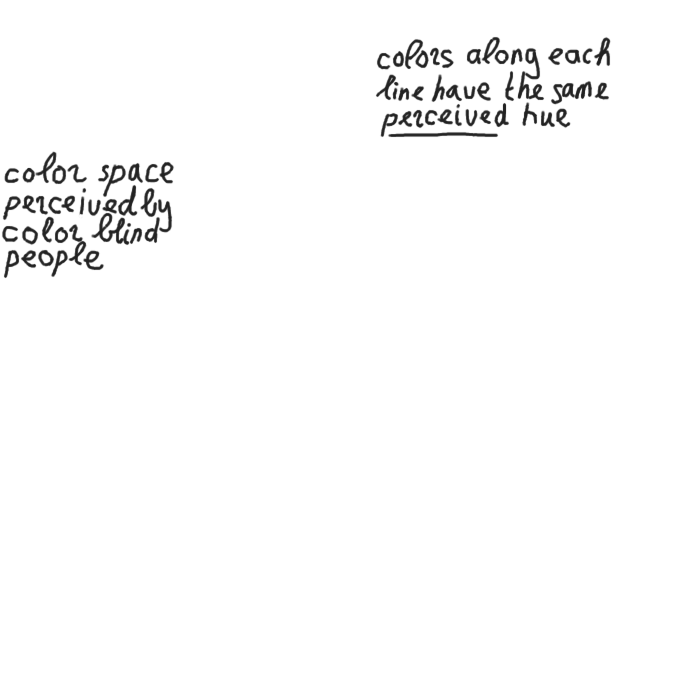 colors along each
line have the same
perceived hue
color space
perceived by
color blind
people